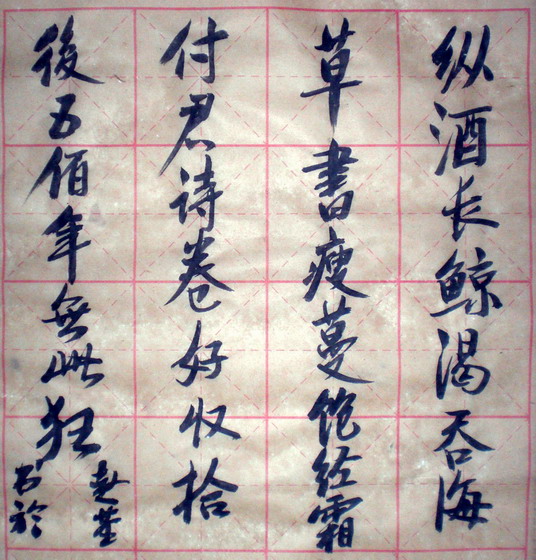 纵酒长鲸渴吞海
草書瘦蔓饱经霜
付君诗卷好收拾
後五佰年無此狂
书於